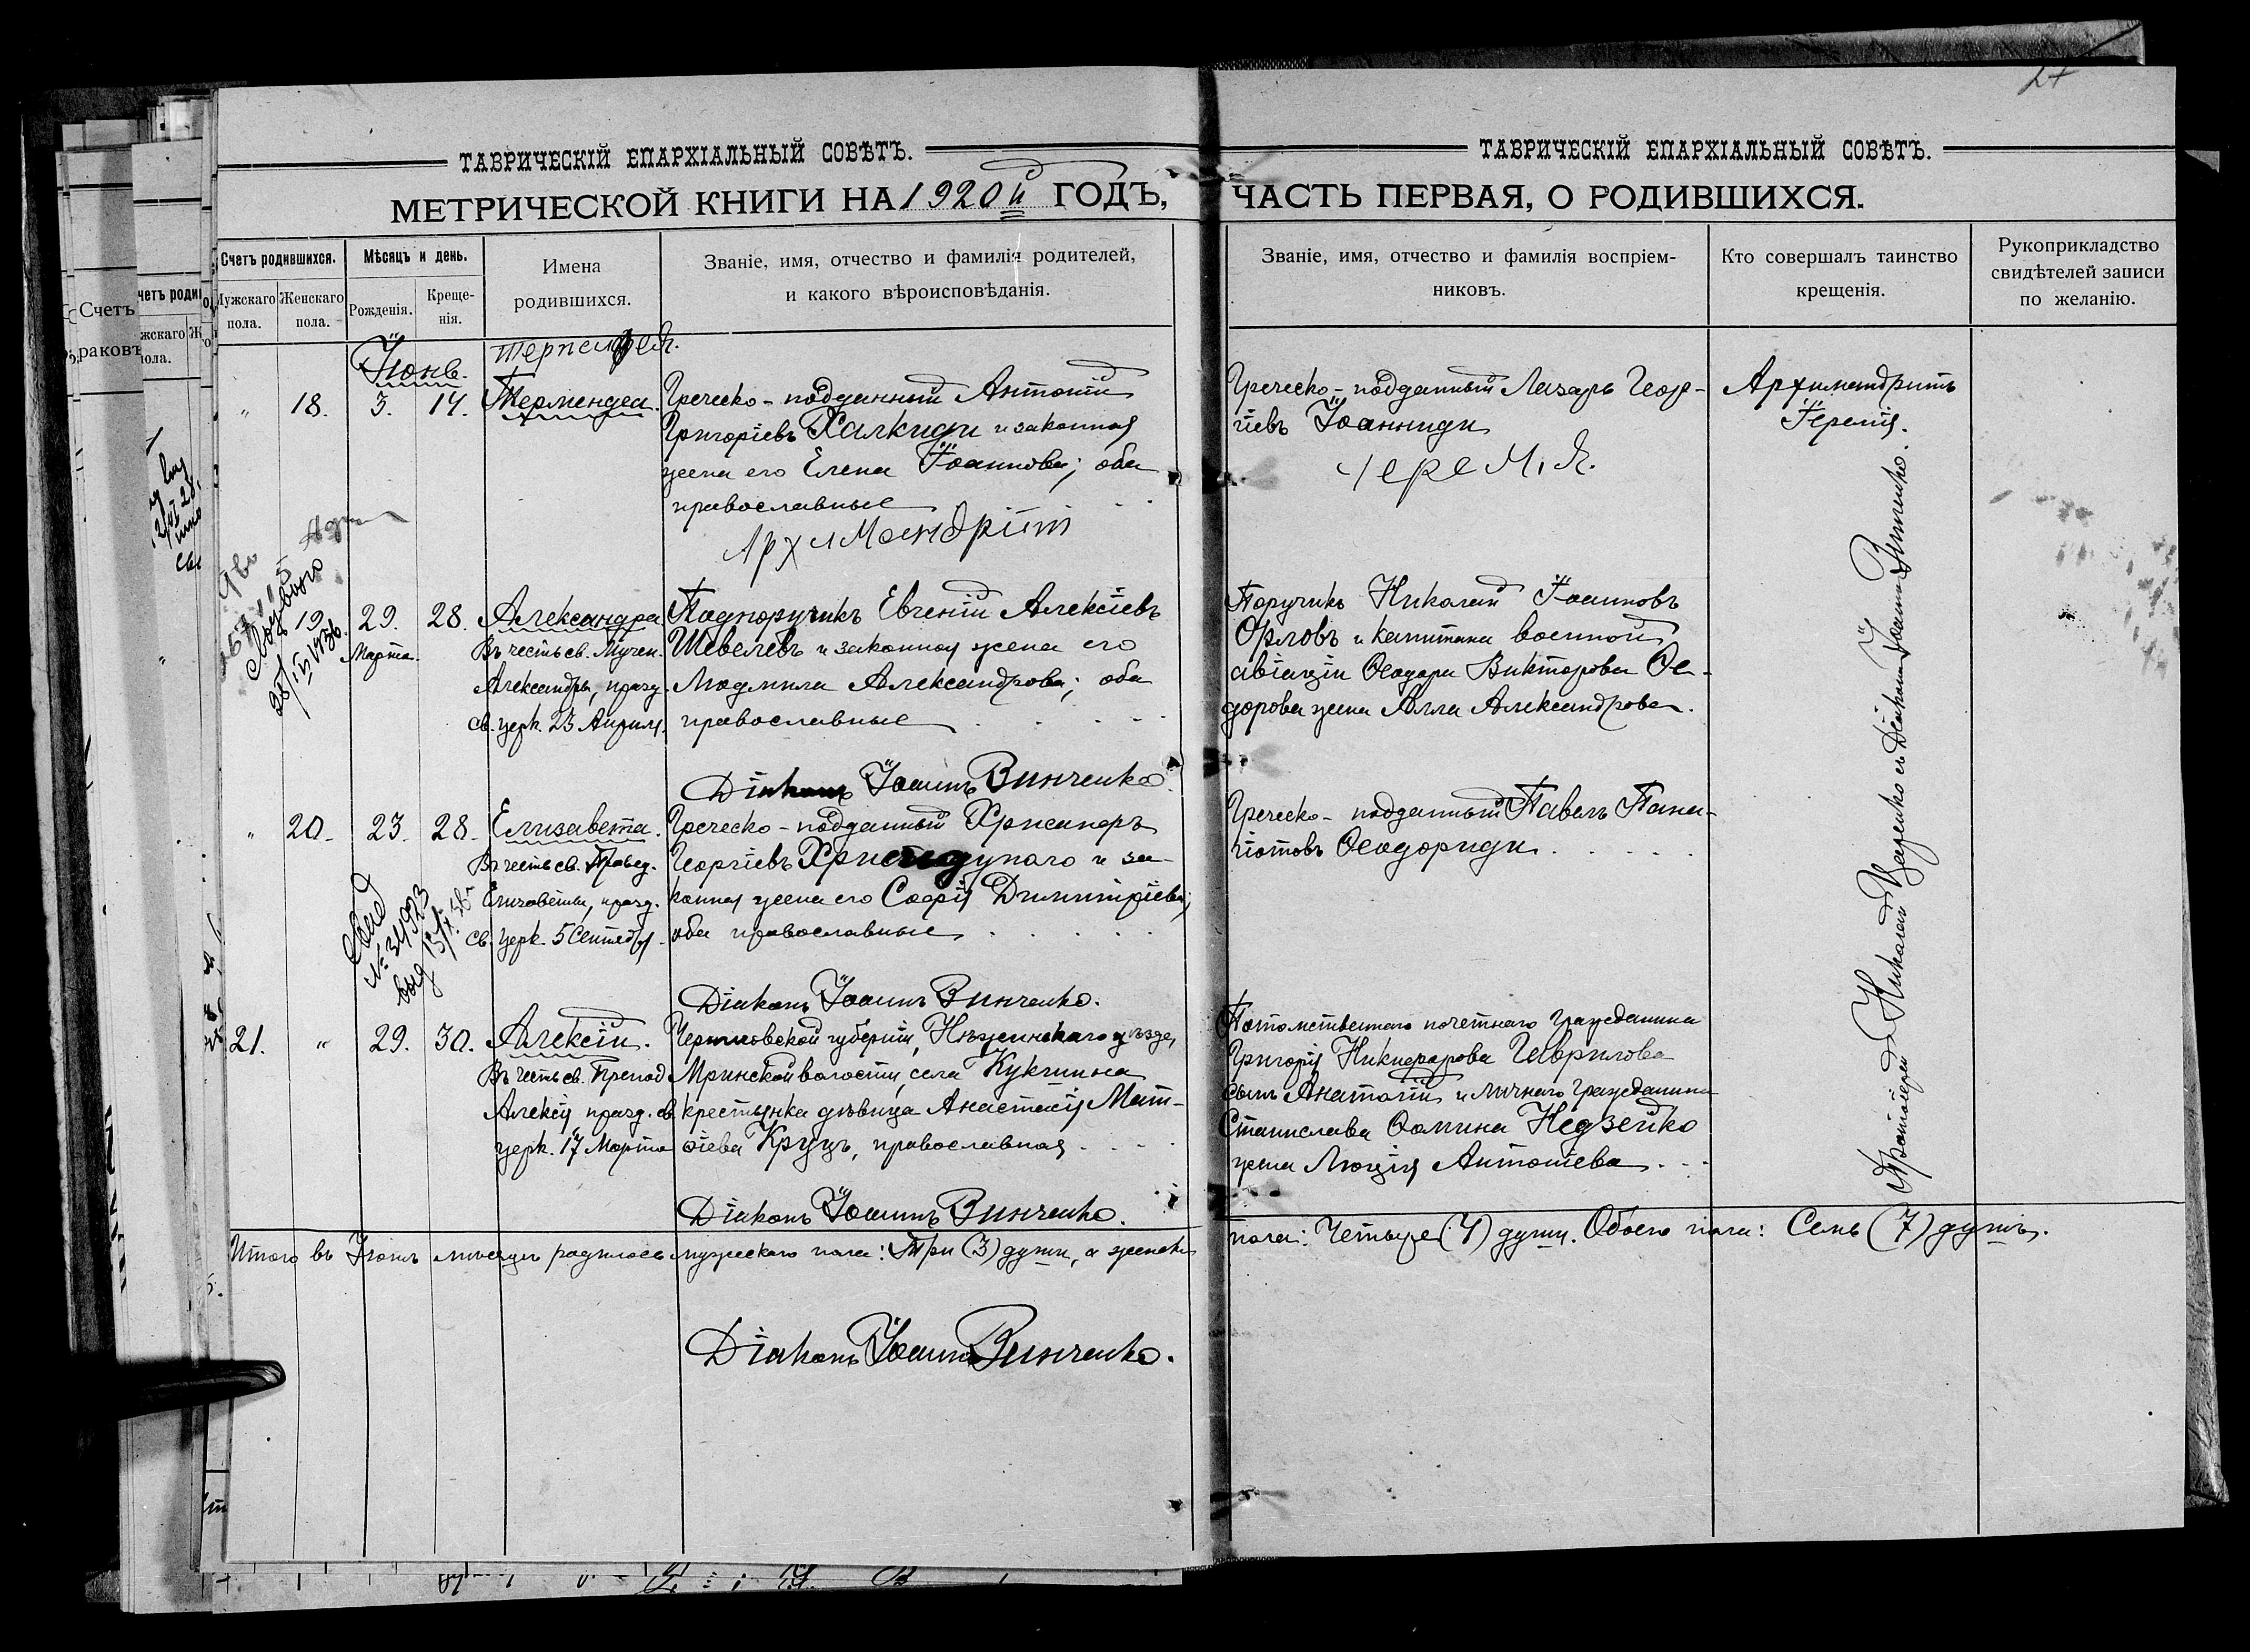 ТАВРИЧЕСКІЙ ЕПАРХІАЛЬНЫЙ СОВѢТЪ.
МЕТРИЧЕСКОЙ КНИГИ НА 1920й ГОДЪ,
Счетъ родившихся.
Мужскаго пола.
Женскаго пола.
Мѣсяцъ и день.
Рожденія.
Креще-
нія.
Имена
родившихся.
Званіе, имя, отчество и фамилія родителей,
и какого вѣроисповѣданія.
Іюнь.
" 18. 3. 14.
Греческо-подданный Антоній
Григоріевъ Халкиди и законная
жена его Елена Іоаннова; оба
православные
Архимандріт
19. 29. 28. Александра
Марта.
Въ честь св. Мучен.
Александры, празд.
св. церк. 23 Апрѣля.
Подпоручикъ Евгеній Алексіевъ
Шевелевъ и законная жена его
Людмила Александрова; оба
православные
Діаконъ Іоаннъ Винченко.
" 20. 23. 28. Елизавета.
Въ честь св. Правед.
Елизаветы, празд.
св. церк. 5 Сентября.
Греческо-подданный
Георгіевъ и за-
конная жена его Софія Димитріева;
оба православные
Діаконъ Іоаннъ Винченко.
№ 34923
21. " 29. 30. Алексій.
Въ честь св. Препод.
Алексія празд. св.
церк. 17 Марта
Черниговской губерніи, Нѣжинскаго уѣзда,
Мринской волости, села Кукшина
крестьянка дѣвица Анастасія Мат-
ѳіева Круцъ, православная
Діаконъ Іоаннъ Винченко.
Итого въ Іюнѣ мѣсяцѣ родилось мужескаго пола: Три (3) души, а женска
Діаконъ Іоаннъ Винченко.
ТАВРИЧЕСКІЙ ЕПАРХІАЛЬНЫЙ СОВѢТЪ.
ЧАСТЬ ПЕРВАЯ, О РОДИВШИХСЯ.
Званіе, имя, отчество и фамилія воспріем-
никовъ.
Кто совершалъ таинство
крещенія.
Рукоприкладство
свидѣтелей записи
по желанію.
Греческо-подданный Лазарь Геор-
гіевъ Іоанниди
Іеремія.
Архимандритъ
Іеремія.
Поручикъ Николай Іоанновъ
Орловъ и капитана военной
авіаціи Ѳеодора Викторова Ѳе-
дорова жена Алла Александрова.
Греческо-подданный Павелъ Пана-
гіотовъ Ѳеодориди
Потомственнаго почетнаго гражданина
Григорія Никифорова Гаврилова
сынъ Анатолій и личнаго гражданина
Станислава Ѳомина Недзейко
жена Люція Антоніева
Протоіерей Николай съ Діакономъ Іоанномъ Винченко.
пола: Четыре (4) души. Обоего пола: Семь (7) душъ.